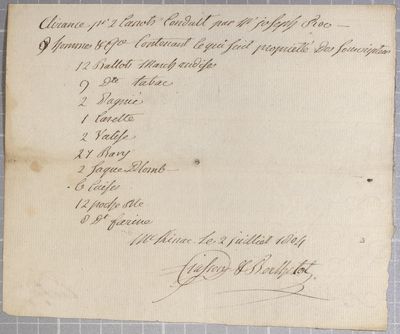 Clerance pr 2 Canots Conduit par Mr joseph Roc
8 hommes & Contenant ce qui suit propriette Des Souscripteur
12 Ballots Marchandise
9 Dto tabac
2 Pagnié
1 Canette
2 Valise
27 Bars
2 saque Plomb
6 Caises
12 poche Blé
8 Dt farine
Mc Kinac Le 2 juilliet 1804
& Berthelot